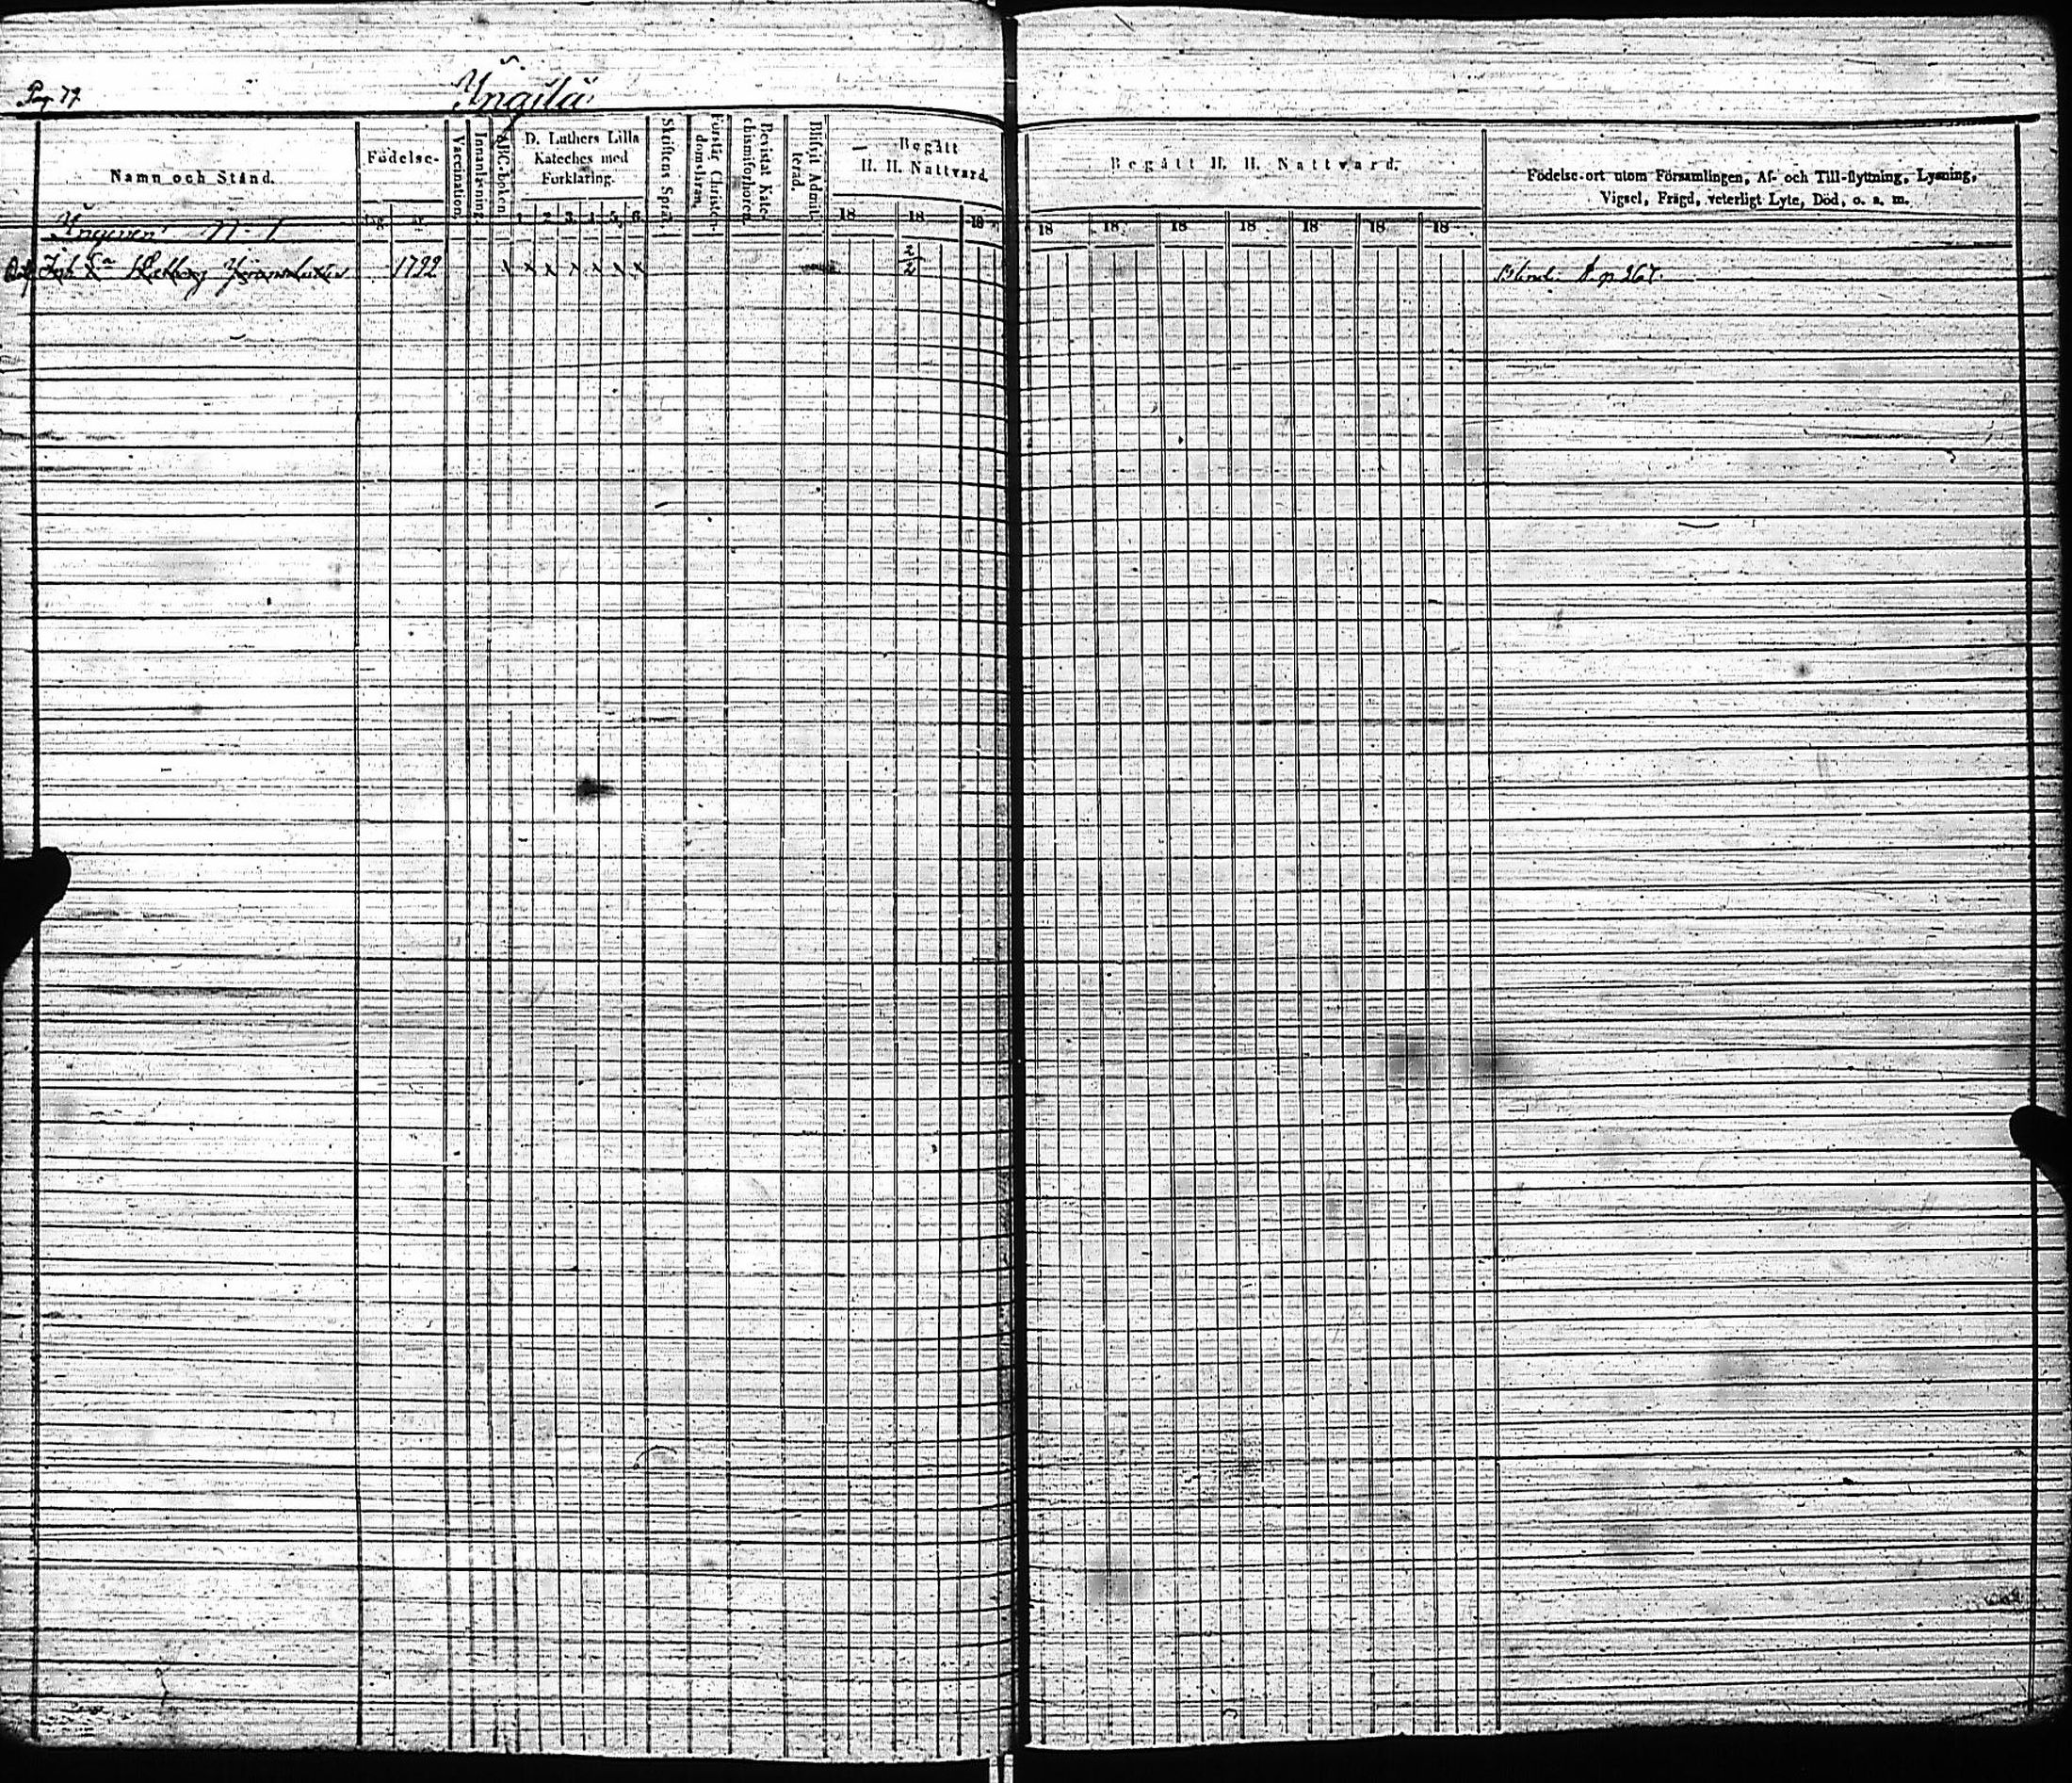 Pag 77.
Yngilä
Namn och Stånd.
Födelse-
dag.
år.
Vaccination.
Innanläsning.
ABC-boken.
D. Luthers Lilla
Kateches med
Förklaring.
1. 2. 3. 4. 5. 6.
Skriftens Språk.
Förstår Christen-
domsläran.
Bevistat Kate-
chismiförhören.
Blifvit Admit-
terad.
Begått
H. H. Nattvard.
18 18 18
Begått H. H. Nattvard.
18 18 18 18 18 18 18
Födelse-ort utom Församlingen, Af- och Till-flyttning, Lysning,
Vigsel, Frägd, veterligt Lyte, Död, o. s. m.
N. 1
1792 x x x x x x 2/2
Blind. p 267.